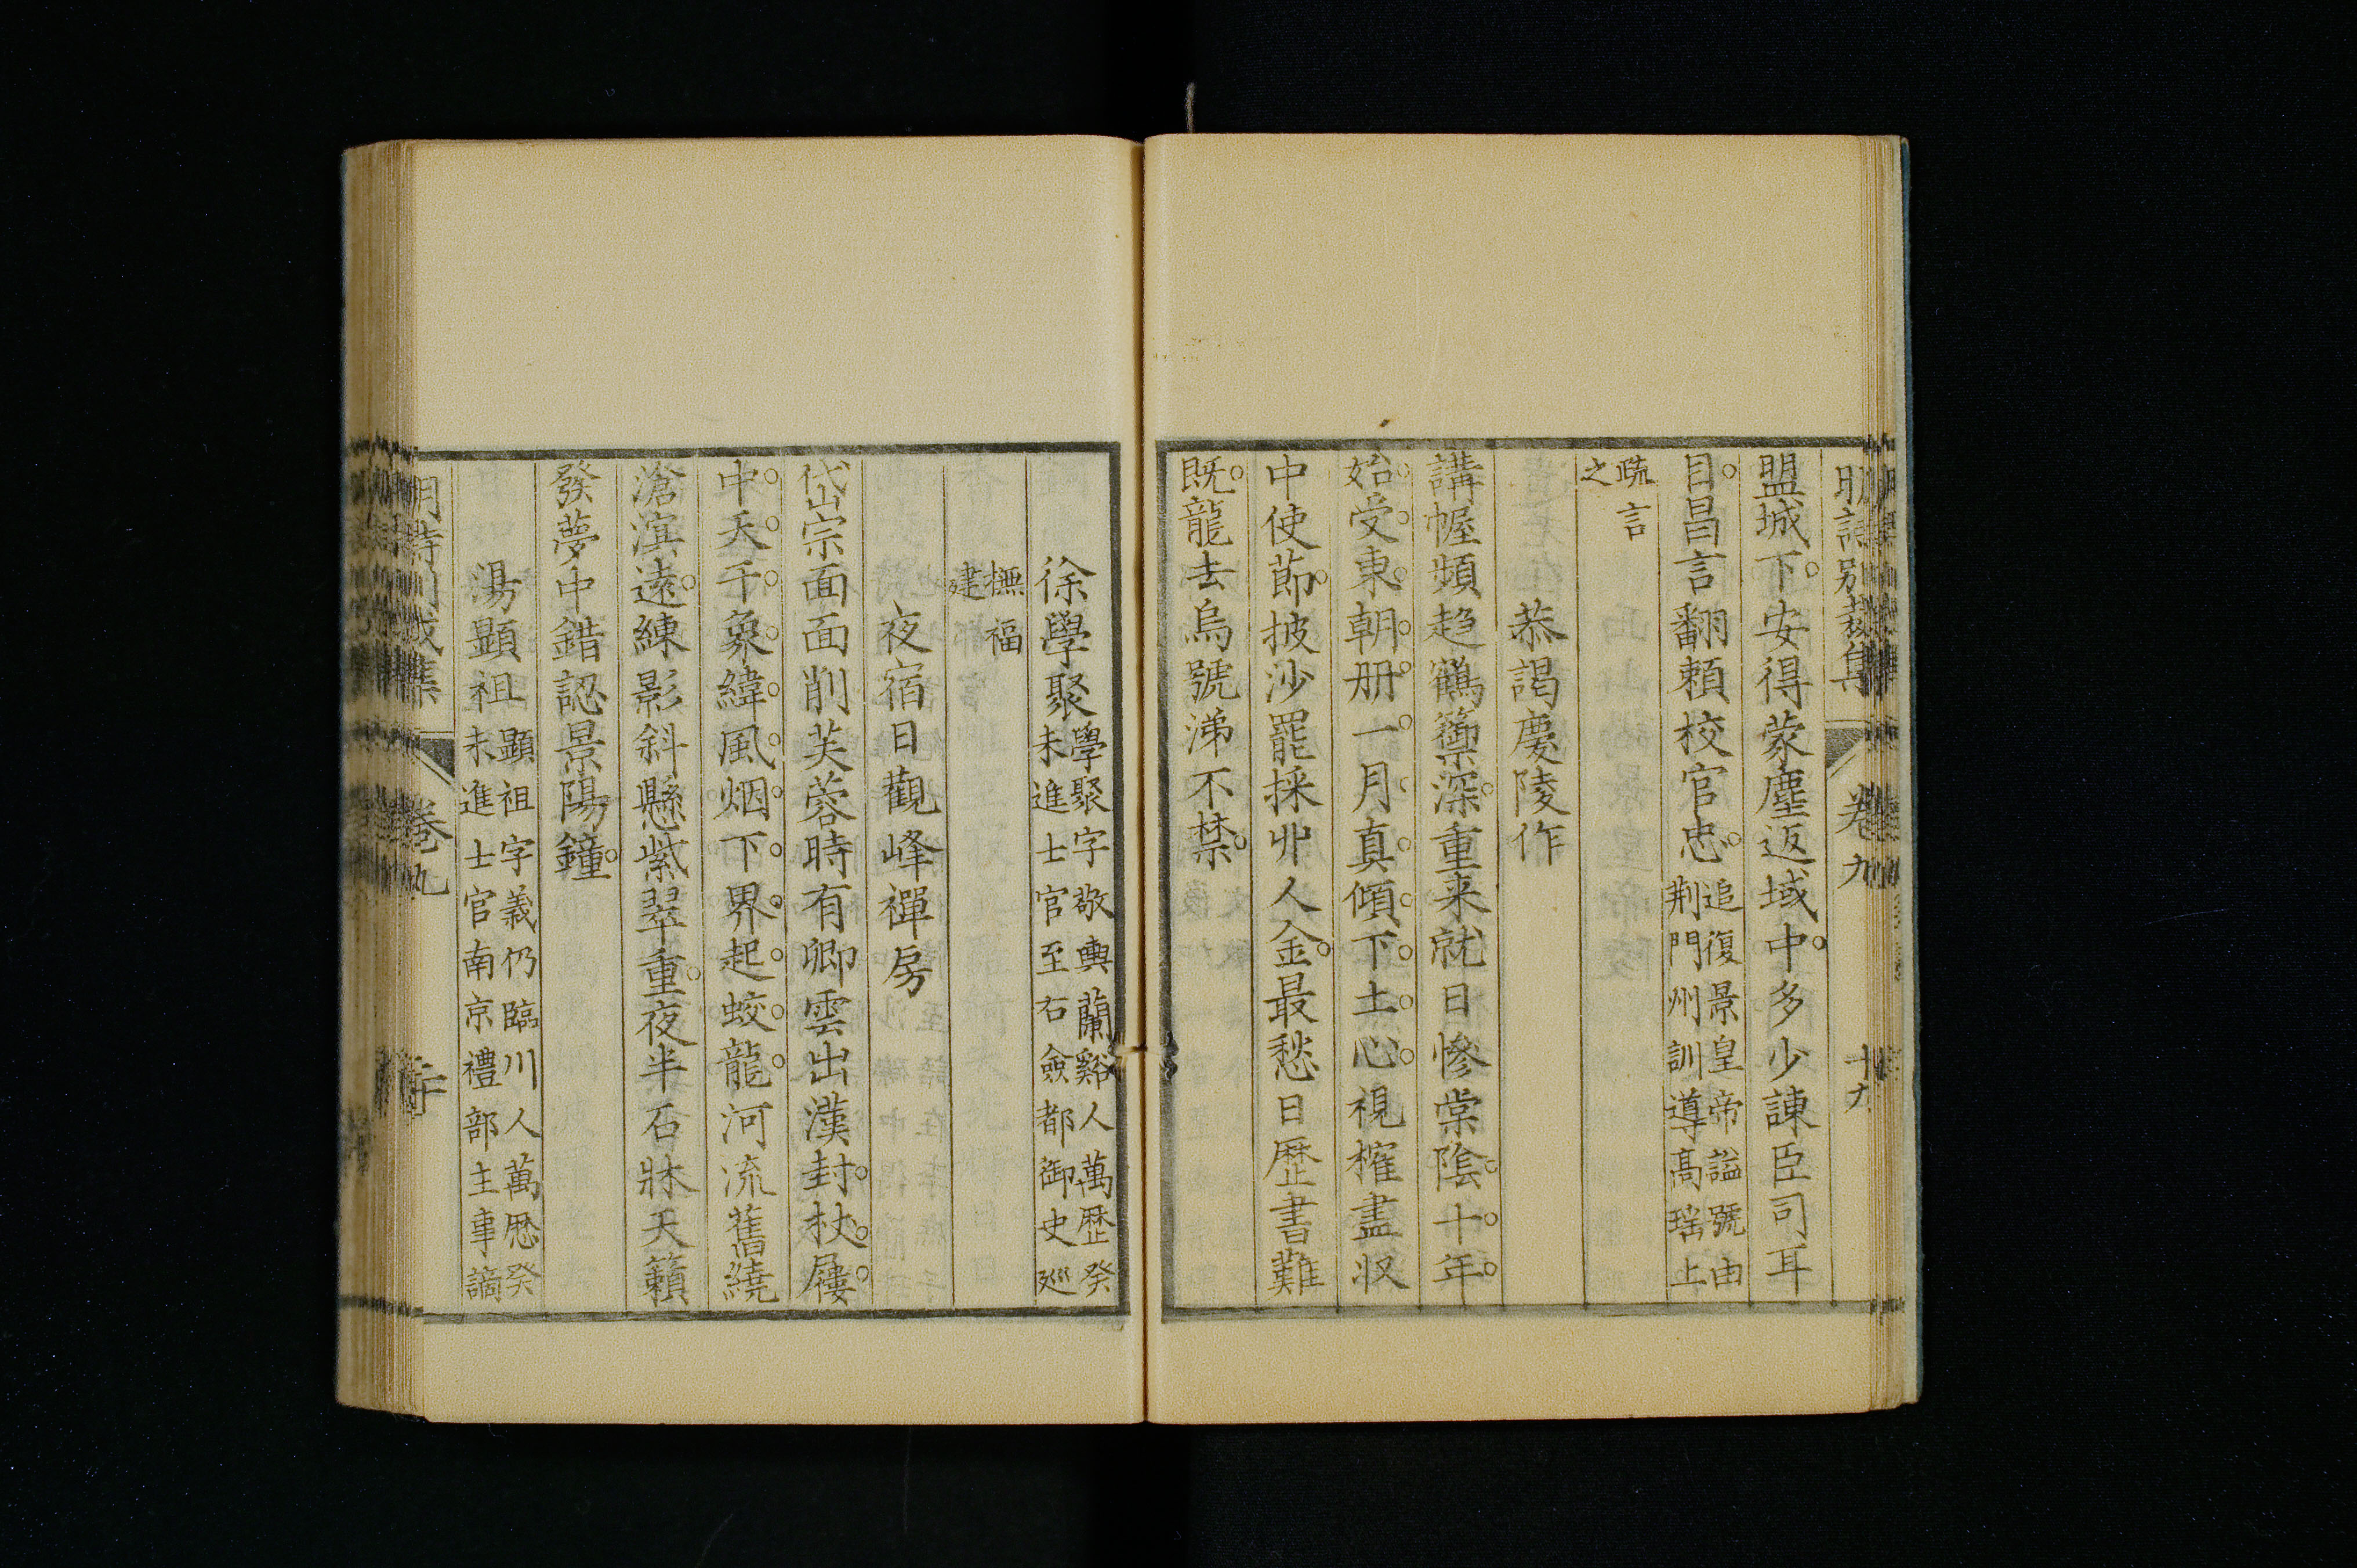 明詩別裁集 卷九 十九
盟城下。安得蒙塵返域中。多少諫臣司耳
目。昌言翻賴校官忠。追復景皇帝諡號由荆門州訓導高瑤上
疏言之
恭謁慶陵作
講幄頻趋鶴籞深。重来就日慘棠陰。十年。
始。受。東。朝。册。一。月。真。傾。下。土。心。視榷盡収
中使節。披沙罷採丱人金。最愁日歷書難
既。龍去烏號涕不禁。
徐學聚學聚字敬輿蘭谿人萬歷癸未進士官至右僉都御史巡
撫福建
夜宿日觀峰禪房
岱宗面面削芙蓉時有卿雲出漢封。杖。屨。
中。天。千。象。緯。風。烟。下。界。起。蛟。龍。河流舊繞
滄溟遠。練影斜懸紫翠重。夜半石牀天籟
發夢中錯認景陽鐘。
湯顯祖顯祖字義仍臨川人萬歷癸未進士官南京禮部主事謫
明詩別裁集 卷九